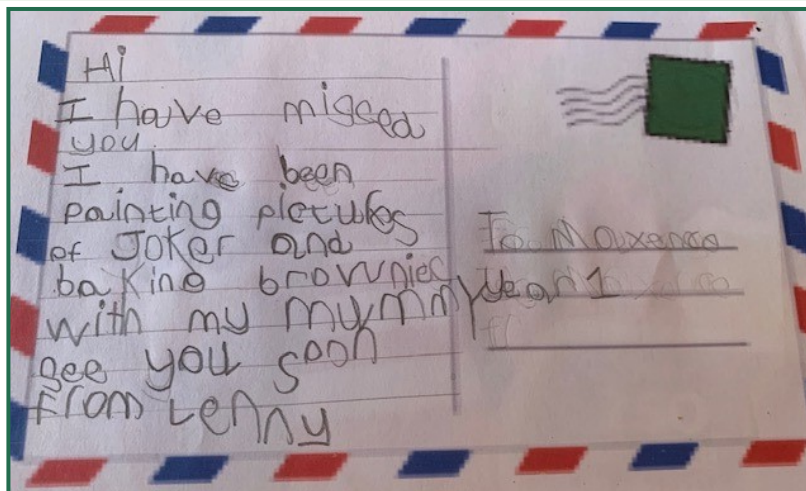 Hi
I have missed
you.
I have been
painting pictures
of Joker and
baking brownies
with my mymmy
see you soon
from Lenny
To Maxence
Year 1